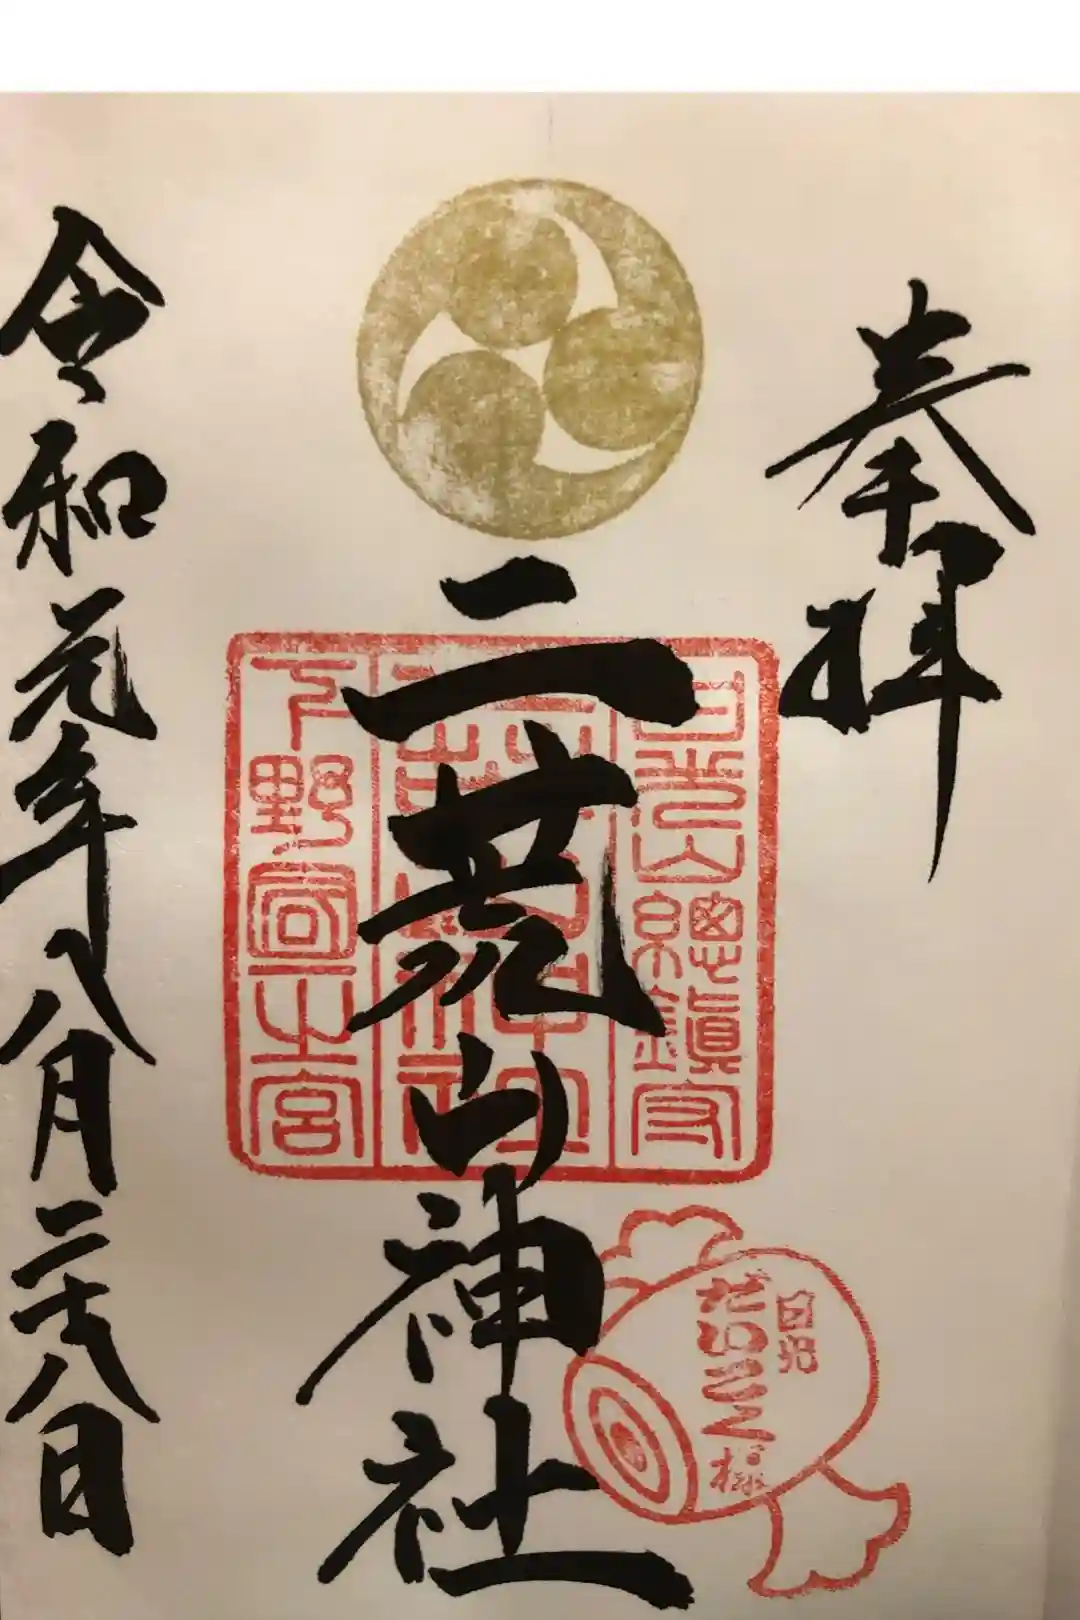 奉拝
日光山總鎮守
二荒山神社
下野國一之宮
日光
だいこく様
令和元年八月二十八日